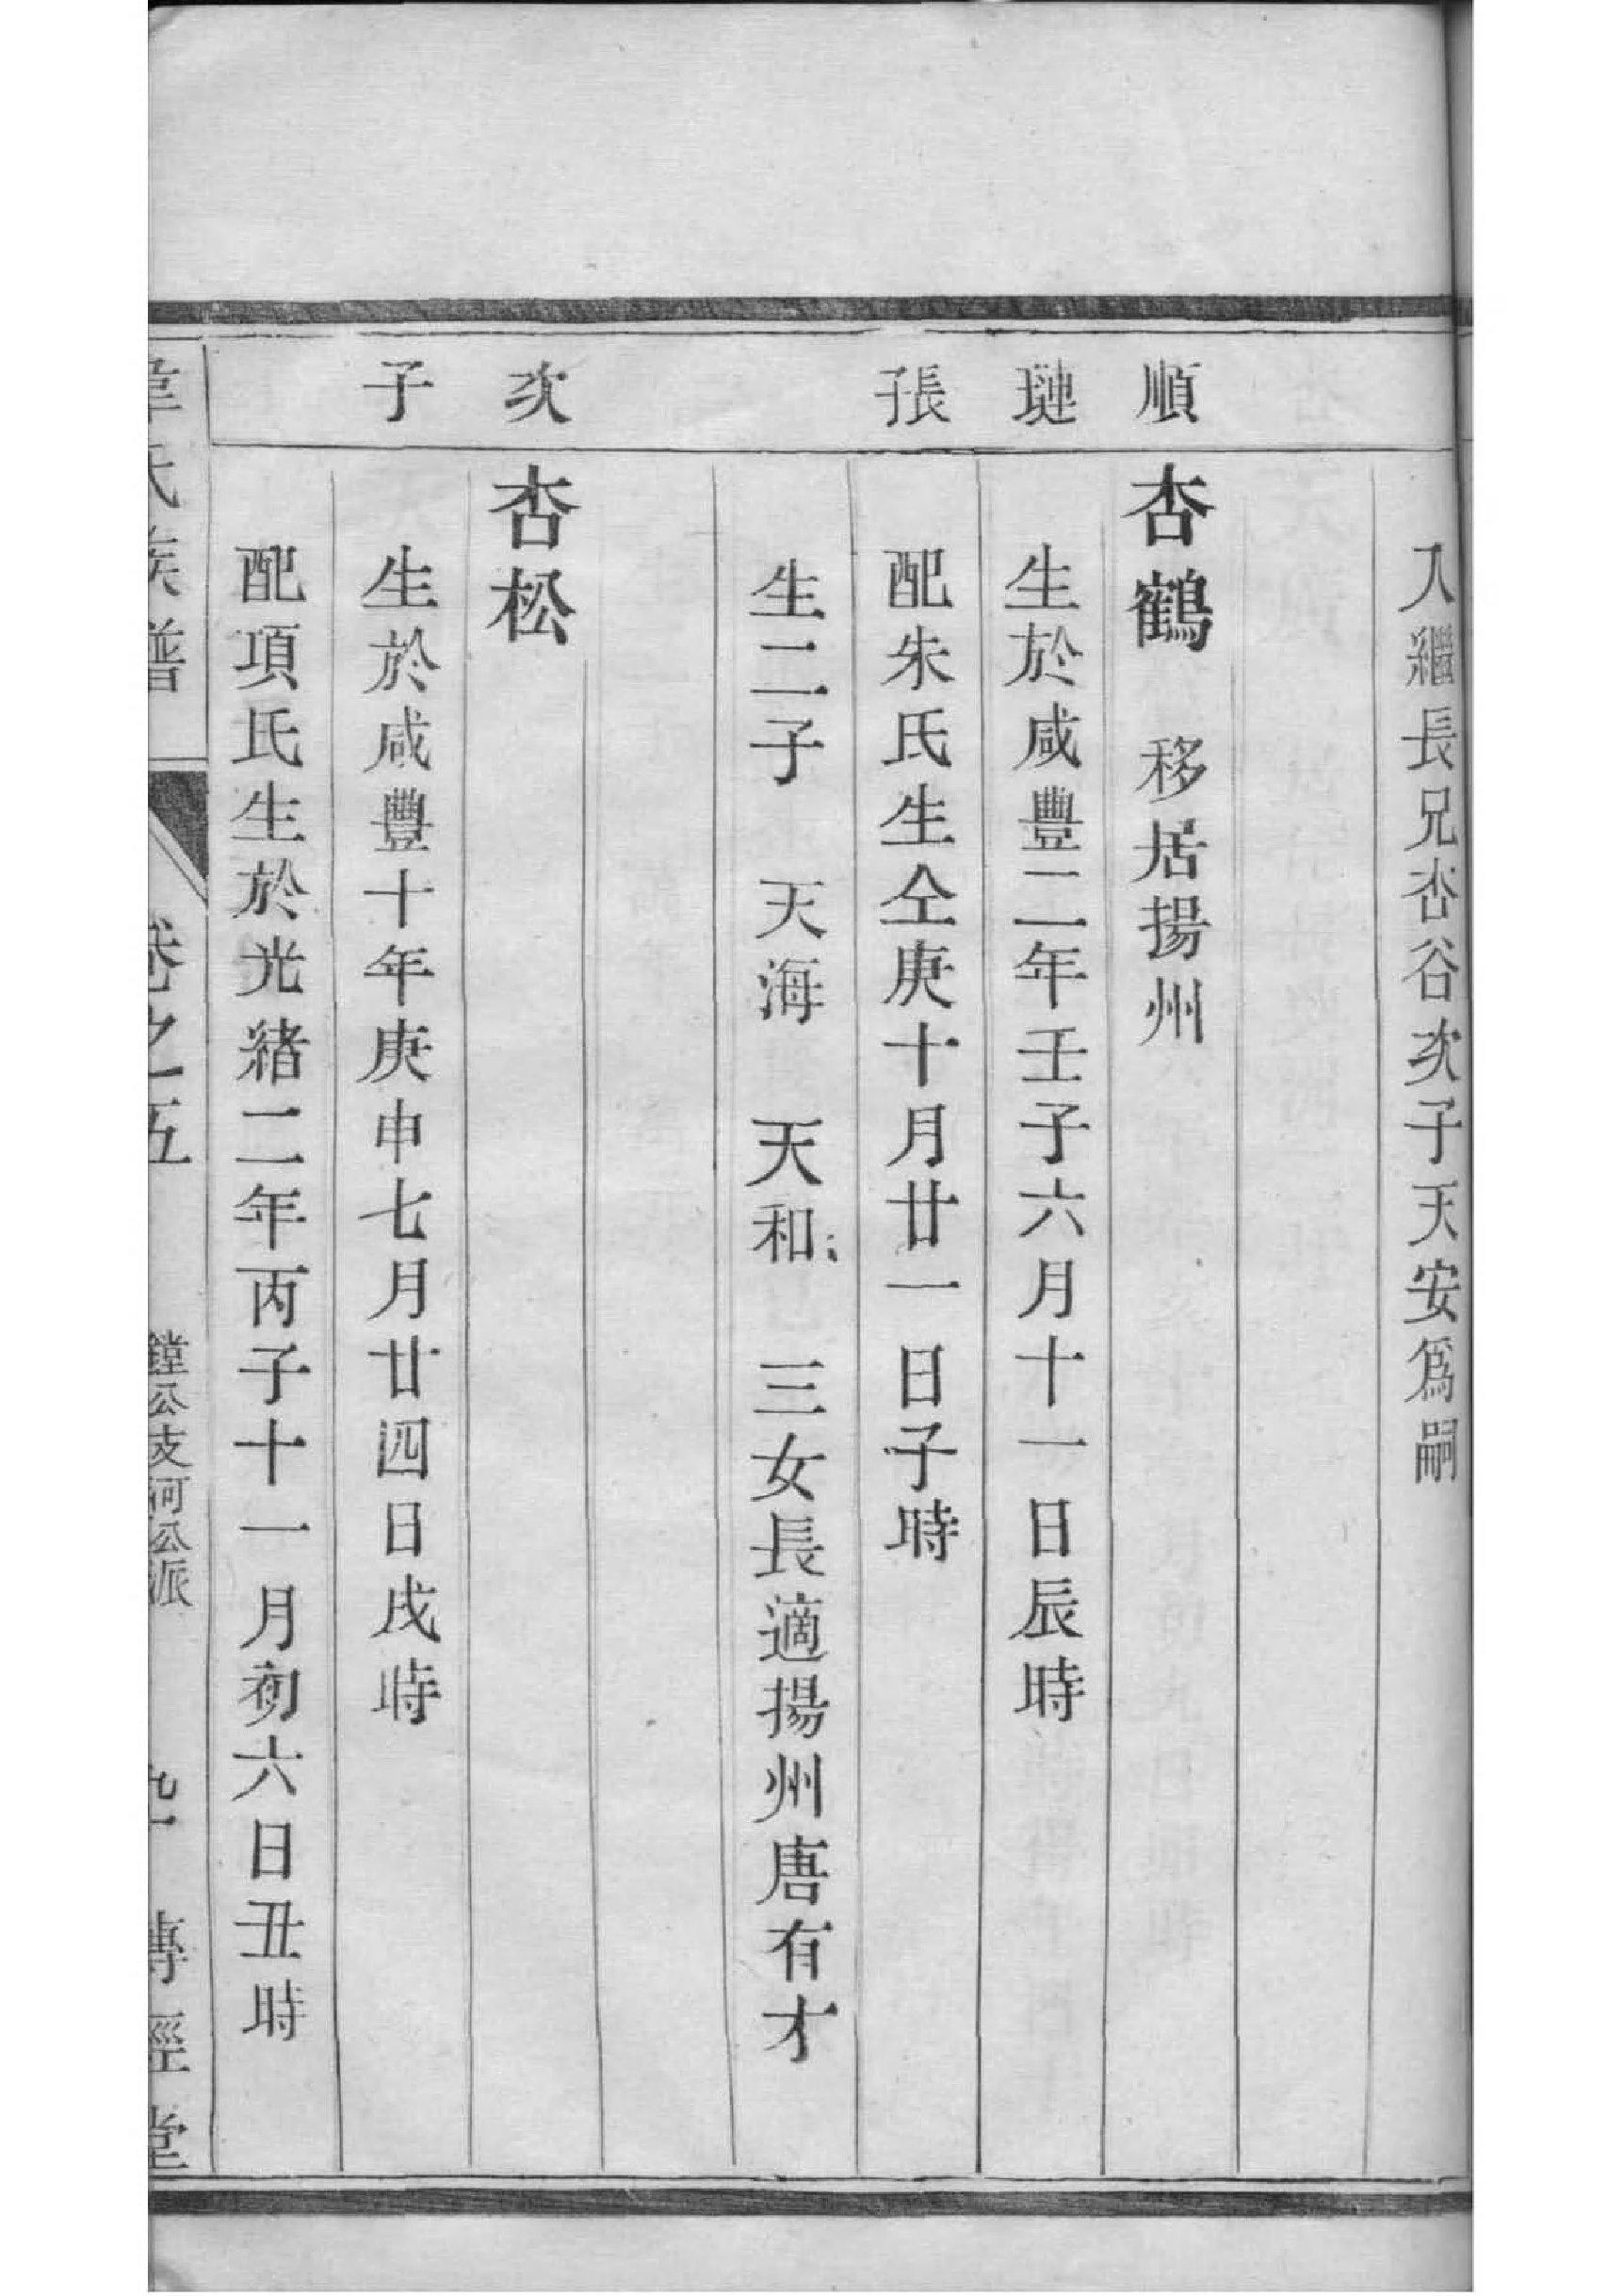 入繼長兄杏谷次子天安爲嗣
順璉長子
杏鶴 移居揚州
生於咸豐二年壬子六月十一日辰時
配朱氏生仝庚十月廿一日子時
生二子 天海 天和 三女長適揚州唐有才
次子
杏松
生於咸豐十年庚申七月廿四日戌時
配項氏生於光緒二年丙子十一月初六日丑時
氏族譜 卷之五 鏜公支河公派 傳經堂